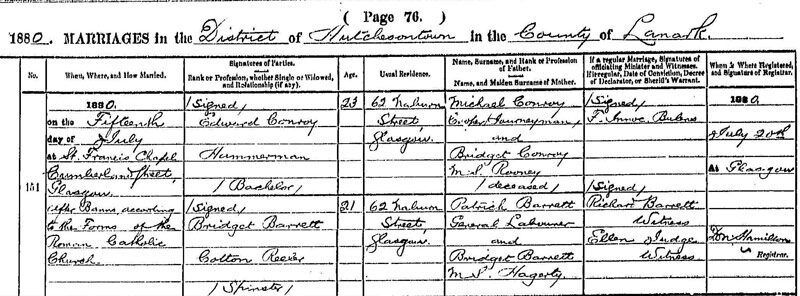 ( Page 76. )
1880. MARRIAGES in the District of Hutchesontown in the County of Lanark.
No.
When, Where, and How Married.
Signatures of Parties.
Rank or Profession, whether Single or Widowed,
and Relationship (if any).
Age.
Usual Residence.
Name, Surname, and Rank or Profession
of Father.
Name, and Maiden Surname of Mother.
If a regular Marriage, Signatures of
officiating Minister and Witnesses.
If irregular, Date of Conviction, Decree
of Declarator, or Sheriff's Warrant.
When & Where Registered,
and Signature of Registrar.
151
1880.
on the Fifteenth
day of July
at St. Francis Chapel
Cumberland Street,
Glasgow.
After Banns according
to the Forms of the
Roman Catholic
Church.
(Signed)
Edward Conroy
Hammerman
(Bachelor)
(Signed)
Bridget Barrett
Cotton Reeler
(Spinster)
23
21
62 Naburn
Street,
Glasgow.
62 Naburn
Street,
Glasgow.
Michael Conroy
Journeyman
and
Bridget Conroy
M.S. Rooney
(deceased)
Patrick Barrett
General Labourer
and
Bridget Barrett
M.S. Hagerty
(Signed)
(Signed)
Richard Barrett
Witness
Ellen Judge
Witness.
1880.
July 20th
At Glasgow
Hamilton
Registrar.